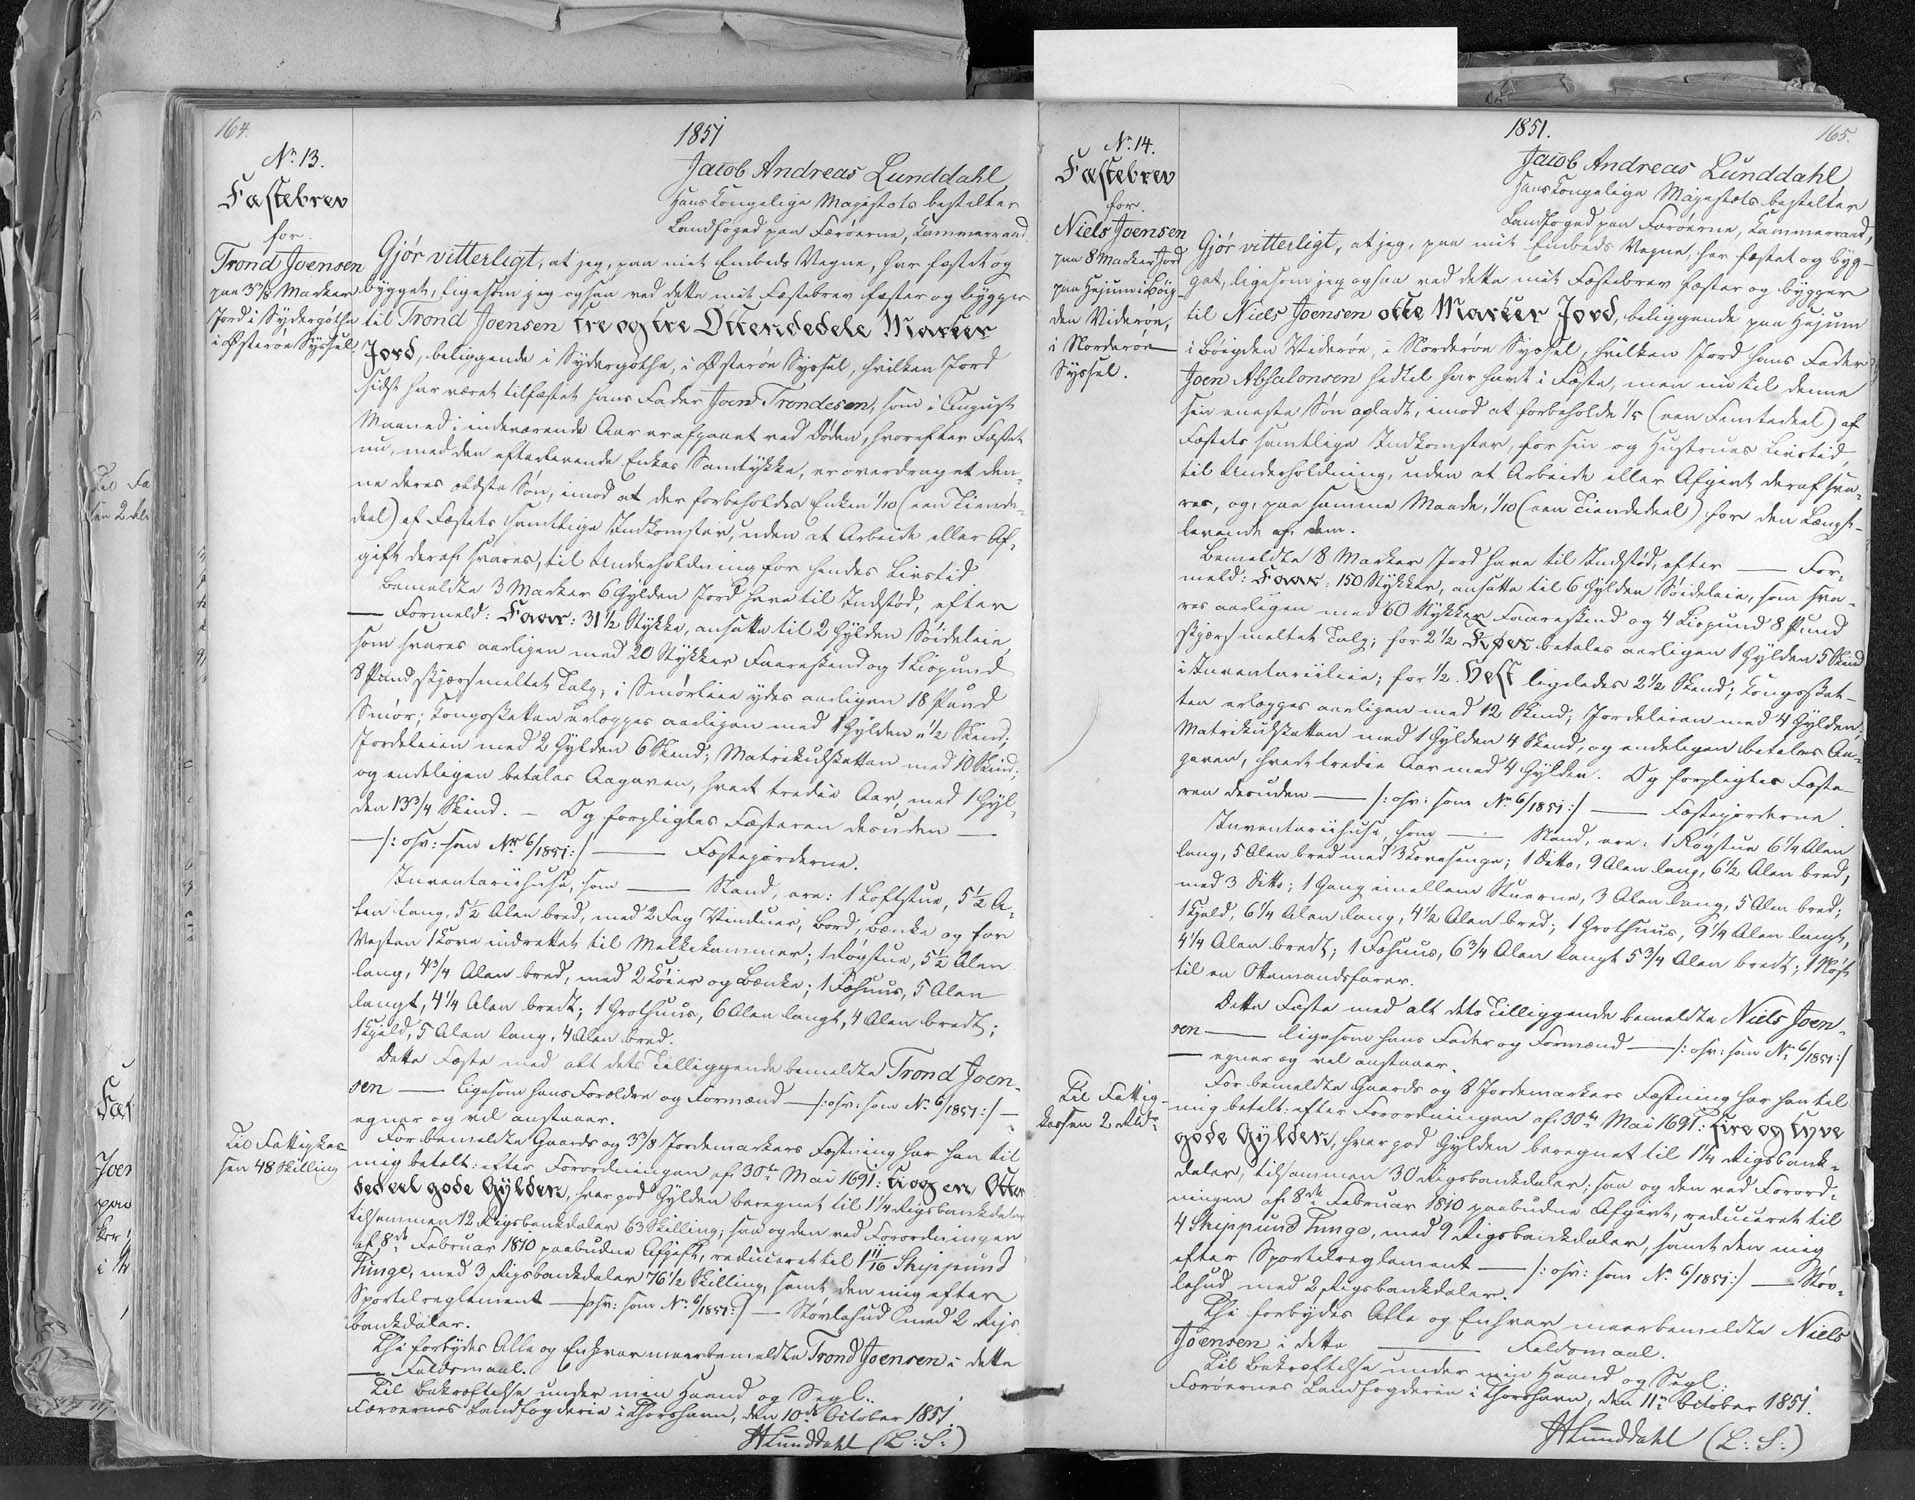 164.
1851
No 13.
Fæstebrev
for
Trond Joensen
paa 3 3/8 Marker
Jord i Sydergöthe
i Østerøe Syssel.
Jacob Andreas Lunddahl
Hans Kongelige Majestæts bestalter
Landfoged paa Færøerne, Kammerraad
Gjør vitterligt, at jeg, paa mit Embeds Vegne, har fæstet og
bygget, ligesom jeg ogsaa ved dette mit Fæstebrev fæster og bygger
til Trond Joensen tre og tre Ottendedele Marker
Jord, beliggende i Sydergöthe, i Østerøe Syssel, hvilken Jord
sidst har været tilfæstet hans Fader Joen Trondesen, som i August
Maaned i indeværende Aar er afgaaet ved Døden, hvorefter Fæstet
nu, med den efterlevende Enkes Samtykke, er overdraget den-
ne deres ældste Søn, imod at der forbeholdes Enken 1/10 (een Tiende-
deel) af Fæstets samtlige Indkomster, uden at Arbeide eller Af-
gift deraf svares, til Underholdning for hendes Livstid.
Bemeldte 3 Marker 6 Gylden Jord have til Indstød, efter
— Formeld: Faar: 31 1/2 Stykke, ansatte til 2 Gylden Söideleie,
som svares aarligen med 20 Stykker Faareskind og 1 Lispund
8 Pund skjærsmeltet Talg; i Smörleie ydes aarligen 18 Pund
Smör; Kongsskatten erlægges aarligen med 1 Gylden 1/2 Skind;
Jordeleien med 2 Gylden 6 Skind; Matrikulskatten med 10 Skind;
og endeligen betales Aagaven, hvert tredie Aar, med 1 Gyl-
den 13 3/4 Skind. — Og forpligtes Fæsteren desuden —
— /: osv: som No 6/1851:/ — Fæstejorderne.
Inventariihuse, som — Stand, ere: 1 Loftstue, 5 1/2 A-
len lang, 5 1/2 Alen bred, med 2 Fag Vinduer, Bord, Bænke og for
Vesten 1 Kove indrettet til Melkekammer; 1 Røgstue, 5 1/2 Alen
lang, 4 3/4 Alen bred, med 2 Köier og Bænke; 1 Fæhuus, 5 Alen
langt, 4 1/4 Alen bredt; 1 Grothuus, 6 Alen langt, 4 Alen bredt;
1 Hjeld, 5 Alen lang, 4 Alen bred.
Dette Fæste med alt dets Tilliggende bemeldte Trond Joen-
sen — ligesom hans Forældre og Formænd — /: osv: som No 6/1851:/ —
egner og vel anstaaer.
Til Fattigkas-
sen 48 Skilling
For bemeldte Gaards og 3 3/8 Jordemarkers Fæstning har han til
mig betalt: efter Forordningen af 30te Mai 1691: ti og en Otten-
dedeel gode Gylden, hver god Gylden beregnet til 1 1/4 Rigsbankdaler
tilsammen 12 Rigsbankdaler 63 Skilling; saa og den ved Forordningen
af 8de Februar 1810 paabudne Afgift, reduceret til 1 11/16 Skippund
Tunge, med 3 Rigsbankdaler 76 1/2 Skilling, samt den mig efter
Sportelreglement — /: osv: som No 6/1851:/ — Störlehud med 2 Rigs-
bankdaler.
Thi forbydes Alle og Enhver meerbemeldte Trond Joensen i dette
— Faldsmaal.
Til Bekræftelse under min Haand og Segl.
Færøernes Landfogderie i Thorshavn, den 10de October 1851.
HLunddahl (L: S:)
1851.
165.
No 14.
Fæstebrev
for
Niels Joensen
paa 8 Marker Jord
paa Hejum i Böig-
den Viderøe,
i Norderøe
Syssel.
Jacob Andreas Lunddahl
Hans Kongelige Majestæts bestalter
Landfoged paa Færöerne, Kammerraad,
Gjør vitterligt, at jeg, paa mit Embeds Vegne, har fæstet og byg-
get, ligesom jeg ogsaa ved dette mit Fæstebrev fæster og bygger
til Niels Joensen otte Marker Jord, beliggende paa Hejum
i Böigden Viderøe, i Norderøe Syssel, hvilken Jord hans Fader
Joen Absalonsen hidtil har havt i Fæste, men nu til denne
sin eneste Søn opladt, imod at forbeholde 1/5 (een Femtedeel) af
Fæstets samtlige Indkomster, for sin og Hustrues Livstid,
til Underholdning, uden at Arbeide eller Afgift deraf sva-
res, og, paa samme Maade, 1/10 (een Tiendedeel) for den Længst-
levende af dem.
Bemeldte 8 Marker Jord have til Indstød, efter — For-
meld: Faar: 150 Stykker, ansatte til 6 Gylden Söideleie, som sva-
res aarligen med 60 Stykker Faareskind og 4 Lispund 8 Pund
skjærsmeltet Talg; for 2 1/2 Kjøer betales aarligen 1 Gylden 5 Skind
i Inventariileie; for 1/2 Hest ligeledes 2 1/2 Skind; Kongsskat-
ten erlægges aarligen med 12 Skind; Jordeleien med 4 Gylden;
Matrikulskatten med 1 Gylden 4 Skind, og endeligen betales Aa-
gaven, hvert tredie Aar med 4 Gylden. Og forpligtes Fæste-
ren desuden — /: osv: som No 6/1851:/ — Fæstejorderne.
Inventariihuse, som — Stand, ere: 1 Røgstue 6 1/4 Alen
lang, 5 Alen bred med 3 Kovesenge; 1 Ditto, 9 Alen lang, 6 1/2 Alen bred,
med 3 Ditto; 1 Gang imellem Stuerne, 3 Alen lang, 5 Alen bred;
1 Hjeld, 6 1/4 Alen lang, 4 1/2 Alen bred; 1 Grothuus, 9 1/4 Alen langt,
4 1/4 Alen bredt; 1 Fæhuus, 6 3/4 Alen langt 5 3/4 Alen bredt; 1 Nöst
til en Ottemandsfarer.
Dette Fæste med alt dets Tilliggende bemeldte Niels Joen-
sen — ligesom hans Fader og Formænd — /: osv: som No 6/1851:/
— egner og vel anstaaer.
Til Fattig-
kassen 2 Rdlr
For bemeldte Gaards og 8 Jordemarkers Fæstning har han til
mig betalt: efter Forordningen af 30te Mai 1691: fire og tyve
gode Gylden, hver god Gylden beregnet til 1 1/4 Rigsbank-
daler, tilsammen 30 Rigsbankdaler; saa og den ved Forord-
ningen af 8de Februar 1810 paabudne Afgift, reduceret til
4 Skippund Tunge, med 9 Rigsbankdaler, samt den mig
efter Sportelreglement — /: osv: som No 6/1851:/ — Stör-
lehud med 2 Rigsbankdaler.
Thi forbydes Alle og Enhver meerbemeldte Niels
Joensen i dette — Faldsmaal.
Til Bekræftelse under min Haand og Segl.
Færøernes Landfogderie i Thorshavn, den 11te October 1851.
HLunddahl (L: S:)